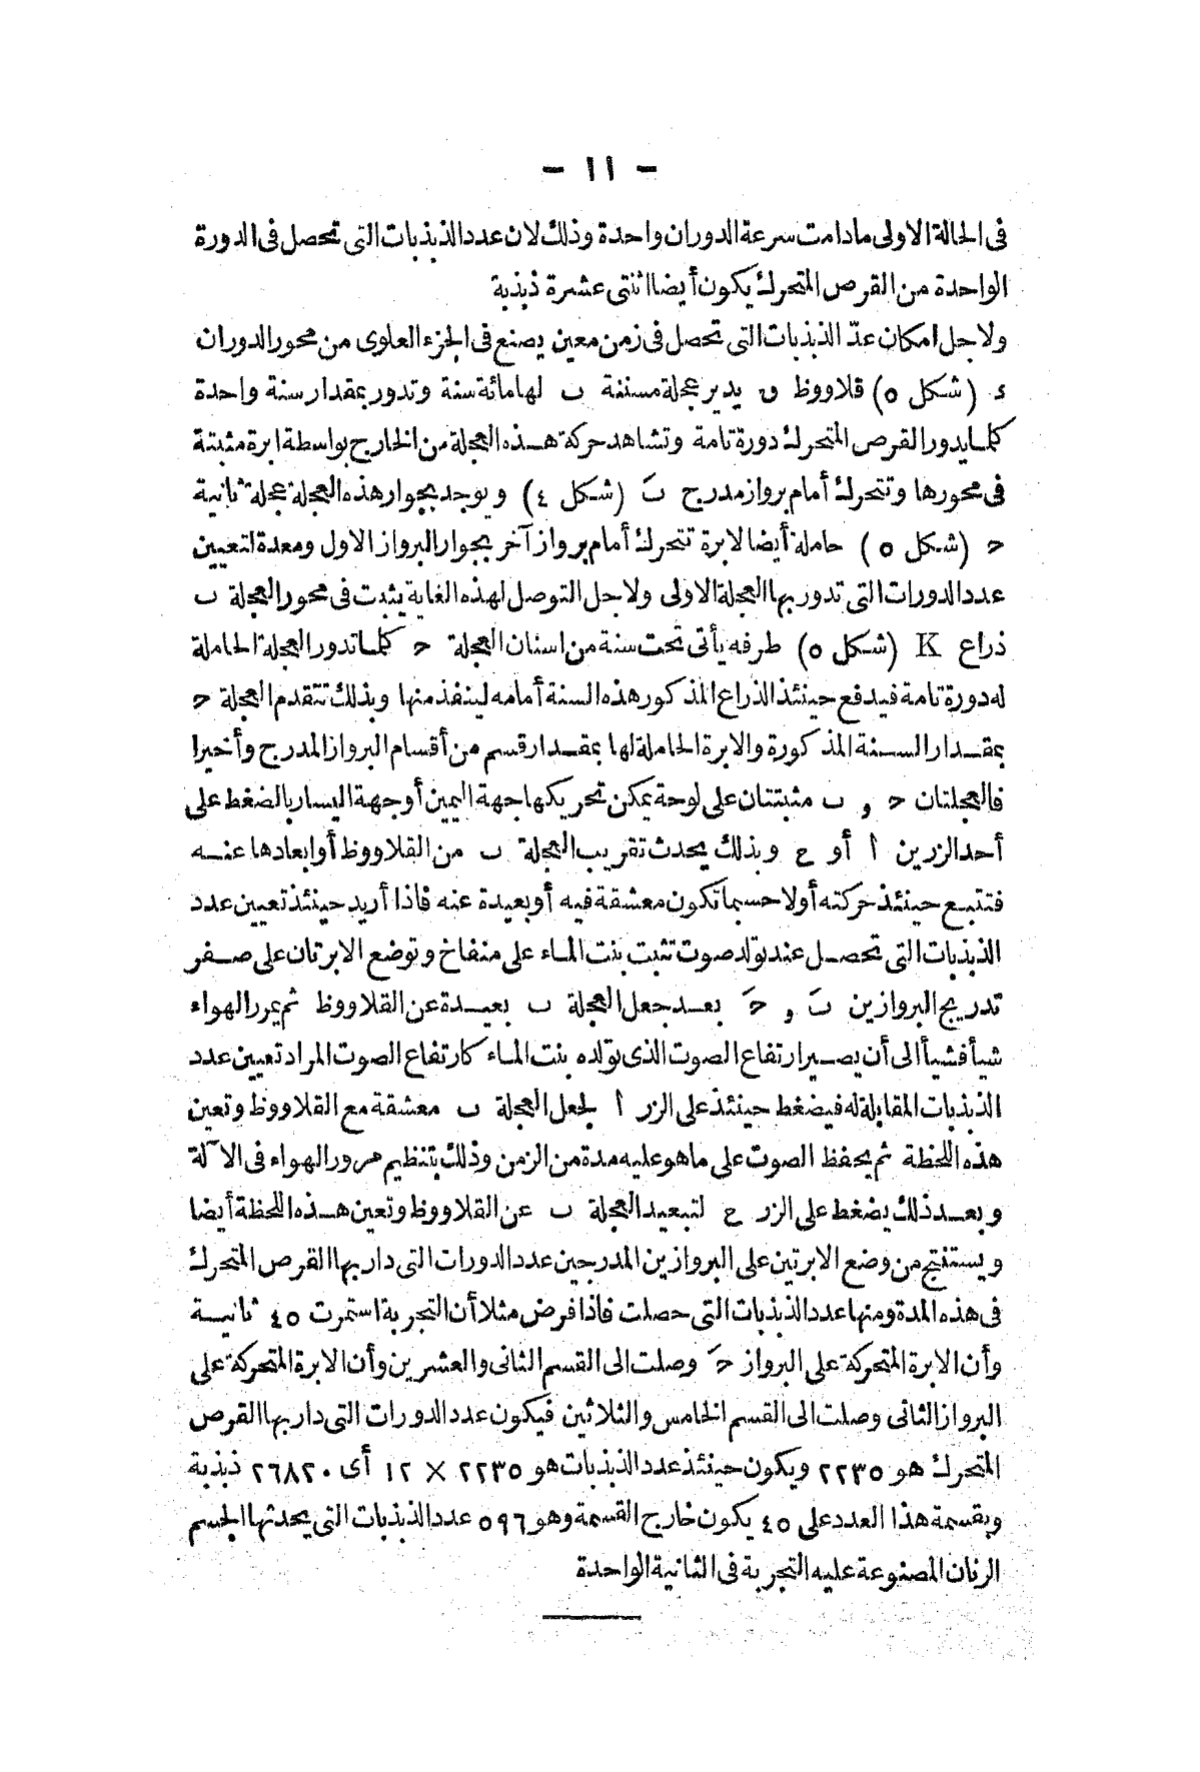 - ١١ -
فى الحالة الاولى مادامت سرعة الدوران واحدة وذلك لان عدد الذبذبات التى تحصل فى الدورة
الواحدة من القرص المتحرك يكون أيضا اثنتى عشرة ذبذبة
ولاجل امكان عدّ الذبذبات التى تحصل فى زمن معين يصنع فى الجزء العلوى من محور الدوران
ء (شكل ٥) قلاووظ ق يدير عجلة مسننة ب لها مائة سنة وتدور بمقدار سنة واحدة
كلما يدور القرص المتحرك دورة تامة وتشاهد حركة هذه العجلة من الخارج بواسطة ابرة مثبتة
فى محورها وتتحرك أمام برواز مدرج بَ (شكل ٤) ويوجد بجوار هذه العجلة عجلة ثانية
ح (شكل ٥) حاملة أيضا لابرة تتحرك أمام برواز آخر بجوار البرواز الاول ومعدة لتعيين
عدد الدورات التى تدور بها العجلة الاولى ولاجل التوصل لهذه الغاية يثبت فى محور العجلة ب
ذراع K (شكل ٥) طرفه يأتى تحت سنة من اسنان العجلة ح كلما تدور العجلة الحاملة
له دورة تامة فيدفع حينئذ الذراع المذكور هذه السنة أمامه لينفذ منها وبذلك تتقدم العجلة ح
بمقدار السنة المذكورة والابرة الحاملة لها بمقدار قسم من أقسام البرواز المدرج وأخيرا
فالعجلتان ح و ب مثبتتان على لوحة يمكن تحريكها جهة اليمين أو جهة اليسار بالضغط على
أحد الزرين أ أو ع وبذلك يحدث تقريب العجلة ب من القلاووظ أو ابعادها عنه
فتتبع حينئذ حركته أولا حسبما تكون معشقة فيه أو بعيدة عنه فاذا أريد حينئذ تعيين عدد
الذبذبات التى تحصل عند تولد صوت تثبت بنت الماء على منفاخ وتوضع الابرتان على صفر
تدريج البروازين بَ و حَ بعد جعل العجلة ب بعيدة عن القلاووظ ثم يمرر الهواء
شيأ فشيأ الى أن يصير ارتفاع الصوت الذى تولده بنت الماء كارتفاع الصوت المراد تعيين عدد
الذبذبات المقابلة له فيضغط حينئذ على الزر أ لجعل العجلة ب معشقة مع القلاووظ وتعين
هذه اللحظة ثم يحفظ الصوت على ما هو عليه مدة من الزمن وذلك بتنظيم مرور الهواء فى الآلة
وبعد ذلك يضغط على الزر ع لتبعيد العجلة ب عن القلاووظ وتعين هذه اللحظة أيضا
ويستنتج من وضع الابرتين على البروازين المدرجين عدد الدورات التى دار بها القرص المتحرك
فى هذه المدة ومنها عدد الذبذبات التى حصلت فاذا فرض مثلا أن التجربة استمرت ٤٥ ثانية
وأن الابرة المتحركة على البرواز حَ وصلت الى القسم الثانى والعشرين وأن الابرة المتحركة على
البرواز الثانى وصلت الى القسم الخامس والثلاثين فيكون عدد الدورات التى دار بها القرص
المتحرك هو ٢٢٣٥ ويكون حينئذ عدد الذبذبات هو ٢٢٣٥ × ١٢ أى ٢٦٨٢٠ ذبذبة
وبقسمة هذا العدد على ٤٥ يكون خارج القسمة وهو ٥٩٦ عدد الذبذبات التى يحدثها الجسم
الرنان المصنوعة عليه التجربة فى الثانية الواحدة